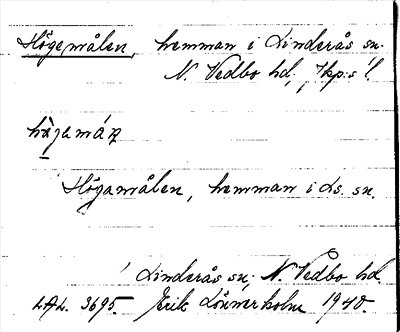 Högemålen, hemman i Linderås sn.
N. Vedbo hd, Jkp:s l.
Höganmålen, hemman i Ls. sn.
Linderås sn, N. Vedbo hd.
LAL. 3695. Erik Lönnerholm 1940.